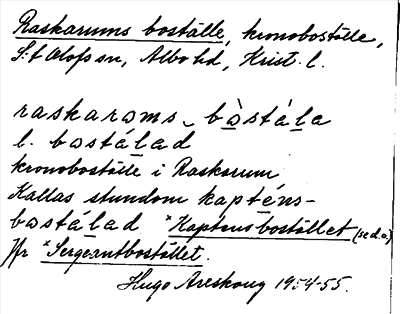 Raskarums boställe, kronoboställe,
S:t Olofs sn, Albo hd, Krist. l.
raskarəms bòstála
l. bəstálad
kronoboställe i Raskarum
Kallas stundom kapténs-
bəstálad *Kaptensbostället (se d.o.)
Jfr *Sergeantbostället.
Hugo Areskoug 1954-55.